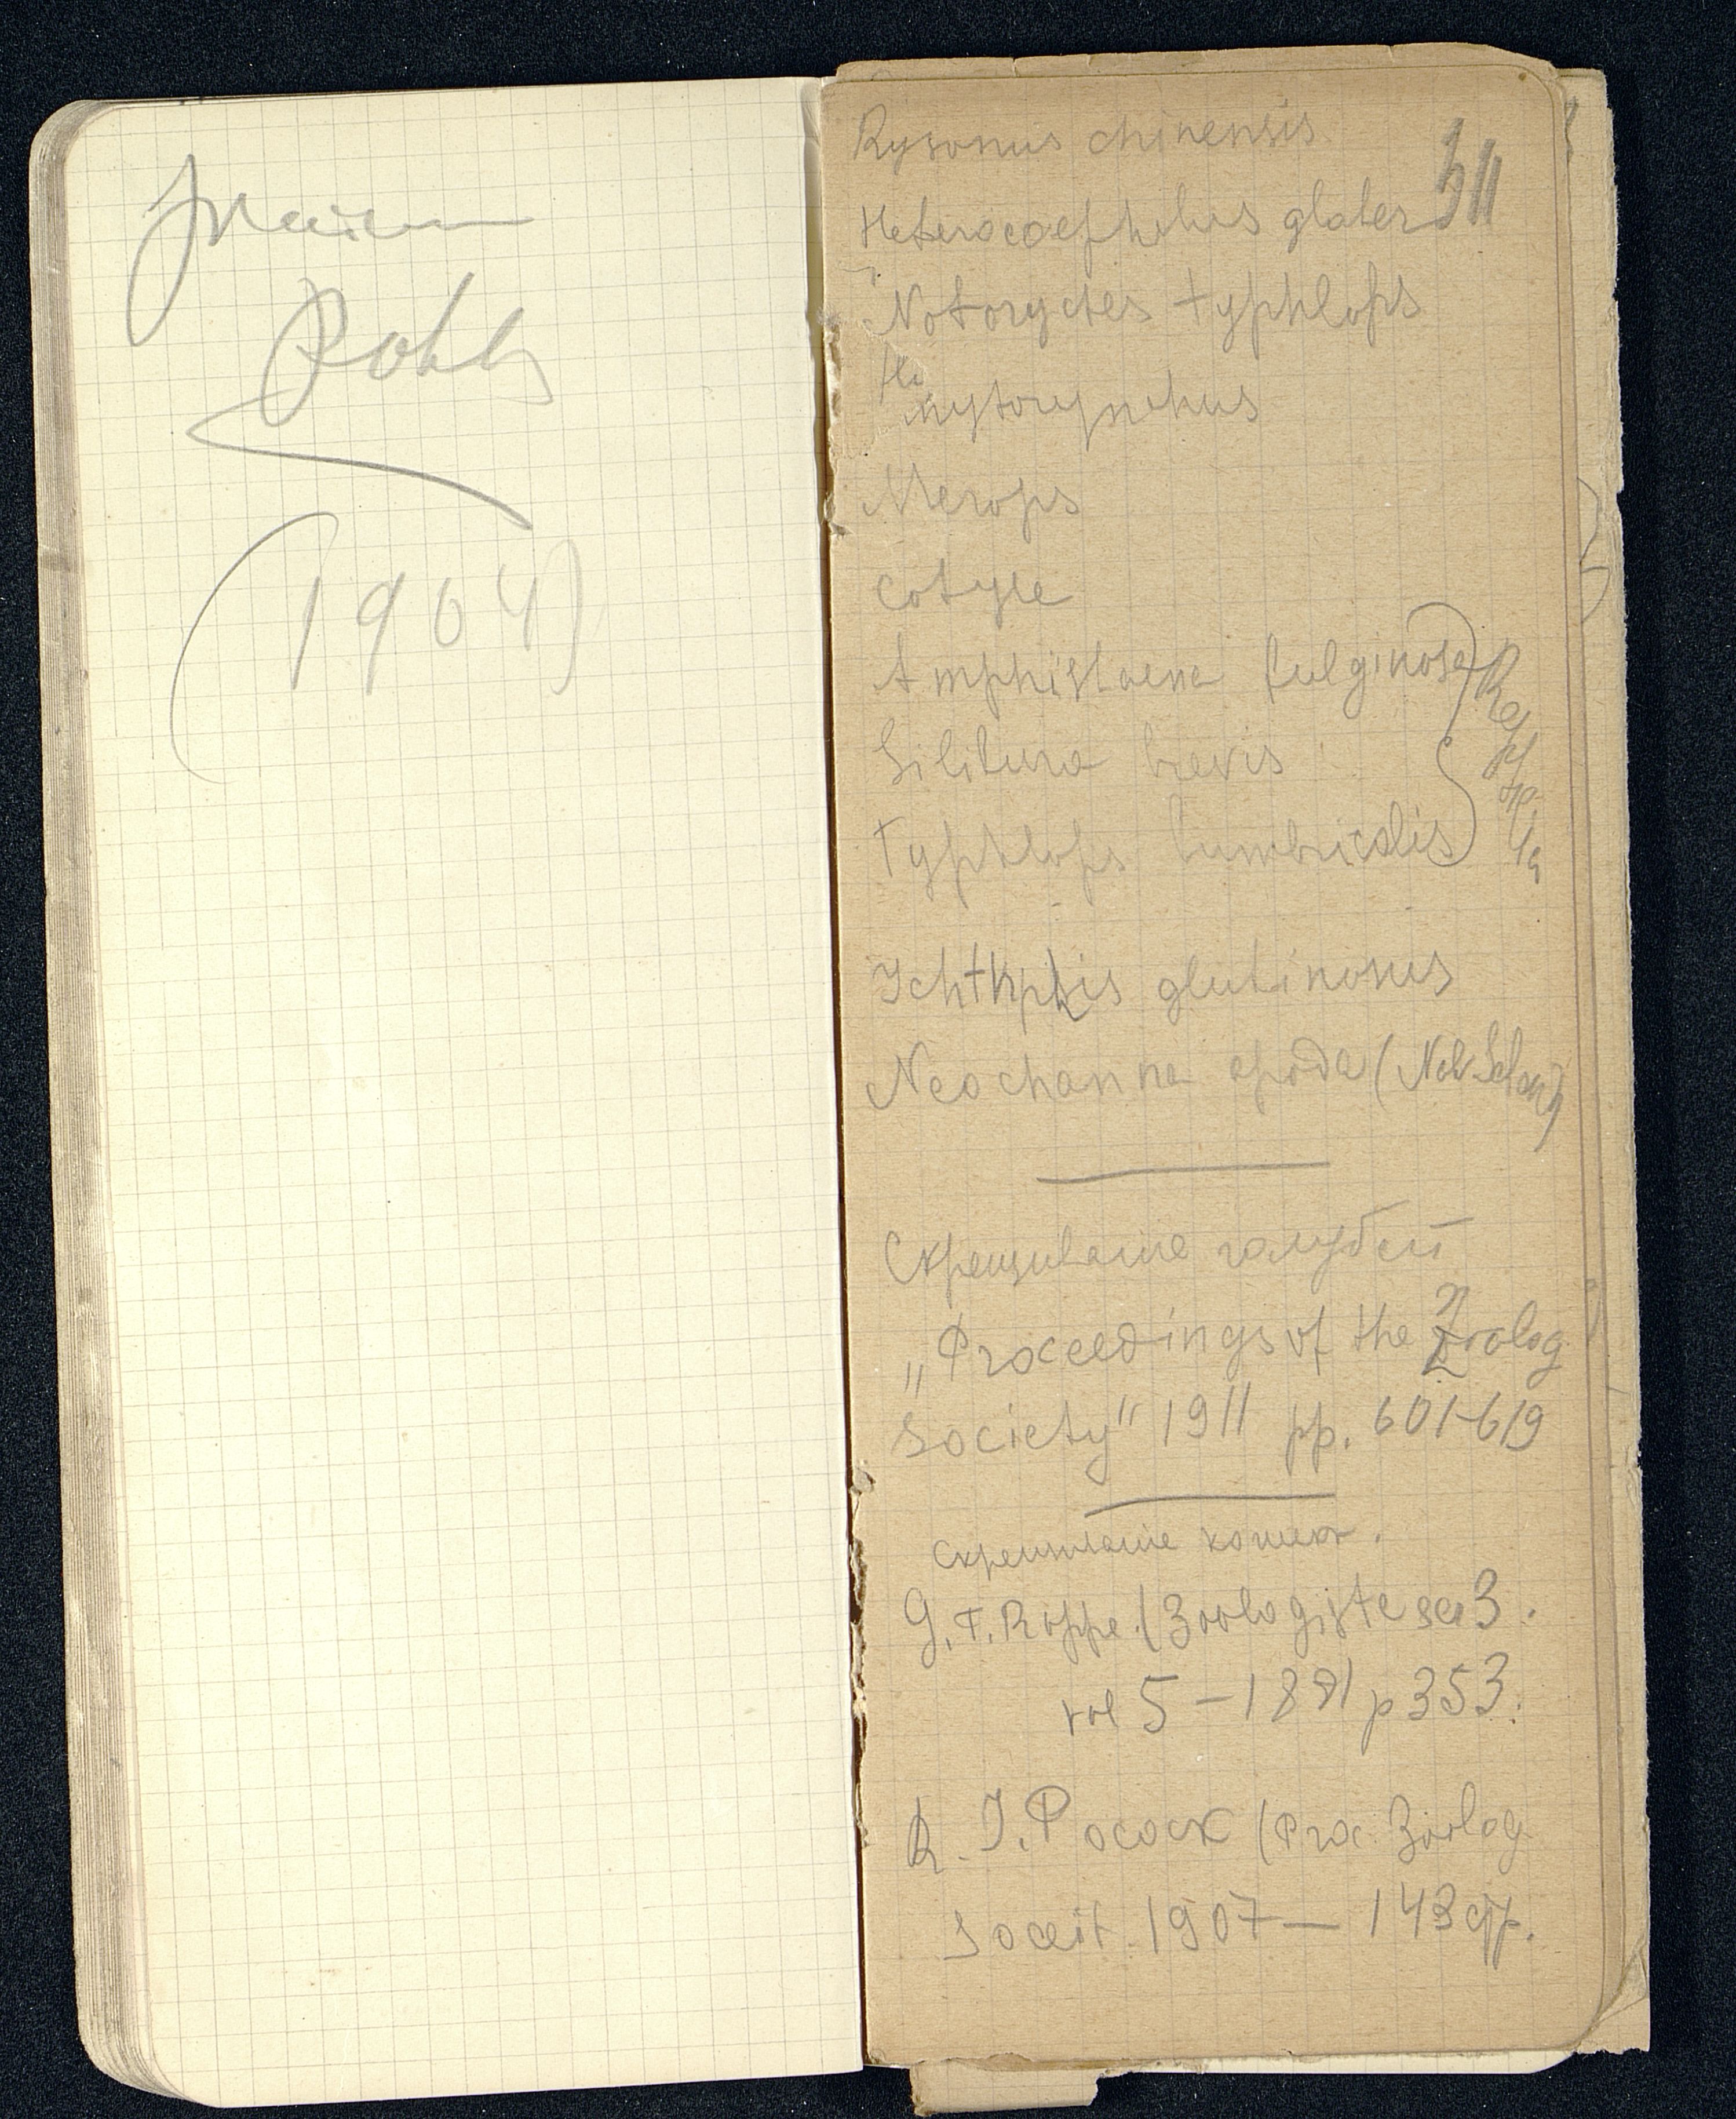 Pohl
(1904)
Rysomus chinensis
Heterocoephulus glater
Notoryctes typhlops
nytorynchus
Merops
Cotyle
Amphisbaena fulginosa
Silibura brevis
Typhlops lumbricalis
Reptilia
Ichthphis glutinosus
Neochanna apoda (Neu Selan)
Скрещивание голубей
„Proceedings of the Zoolog
Society" 1911 pp. 601-619
Скрещивание кошек.
G. T. Roppe. (Zoologiste ser 3.
vol 5 – 1881 p 353.
R. I. Pocock (Proc Zoolog
Soceit. 1907 — 143